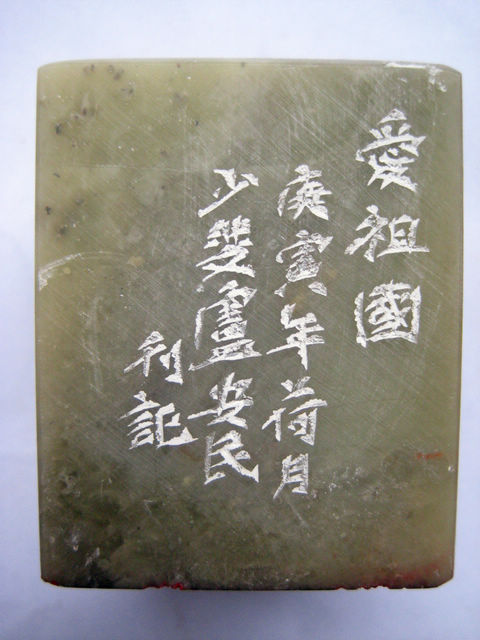 愛祖國
庚寅年荷月
少斐盧安民
利記